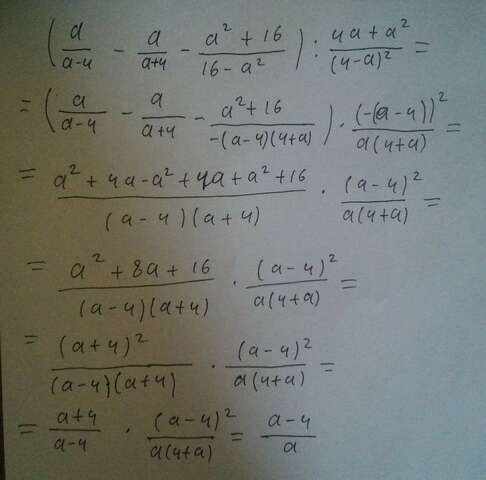 (a/(a-4) - a/(a+4) - (a² + 16)/(16 - a²)) : (4a + a²)/(4-a)² =
= (a/(a-4) - a/(a+4) - (a² + 16)/(-(a-4)(4+a))) · (-(a-4))²/(a(4+a)) =
= (a² + 4a - a² + 4a + a² + 16)/((a-4)(a+4)) · (a-4)²/(a(4+a)) =
= (a² + 8a + 16)/((a-4)(a+4)) · (a-4)²/(a(4+a)) =
= (a+4)²/((a-4)(a+4)) · (a-4)²/(a(4+a)) =
= (a+4)/(a-4) · (a-4)²/(a(4+a)) = (a-4)/a